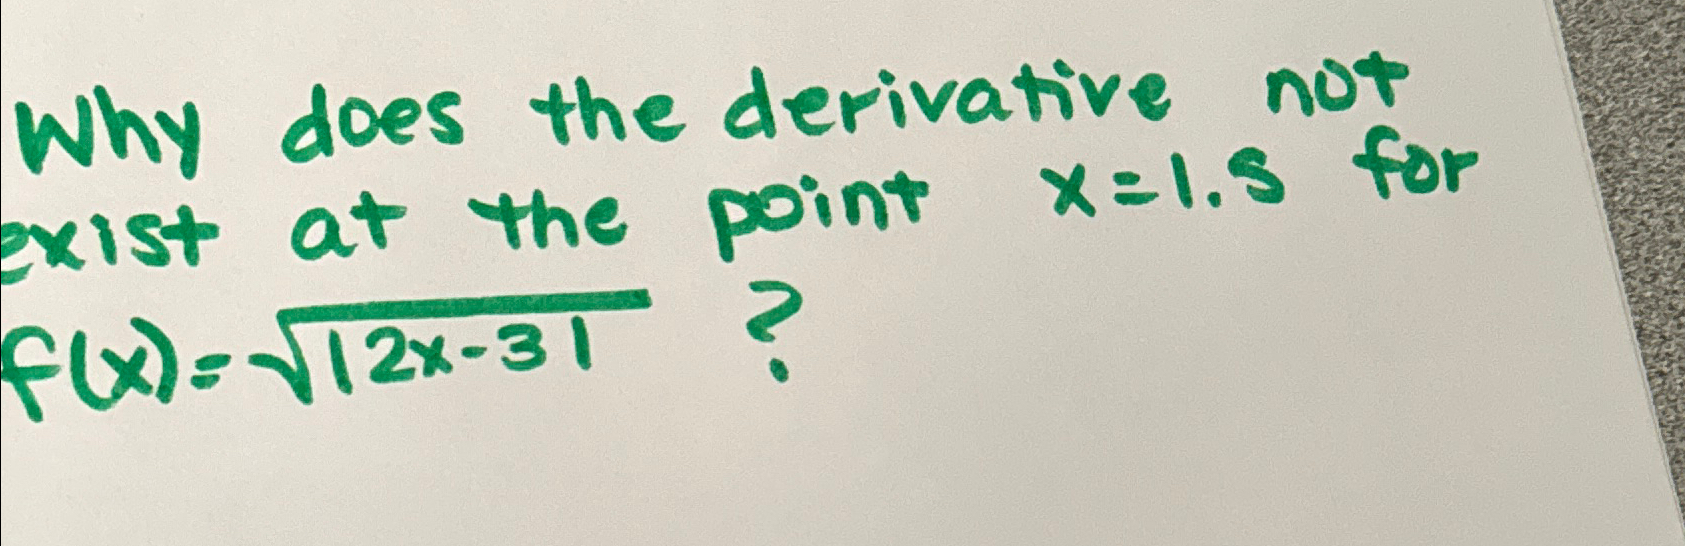 Why does the derivative not
exist at the point x=1.5 for
f(x)=√|2x-3| ?